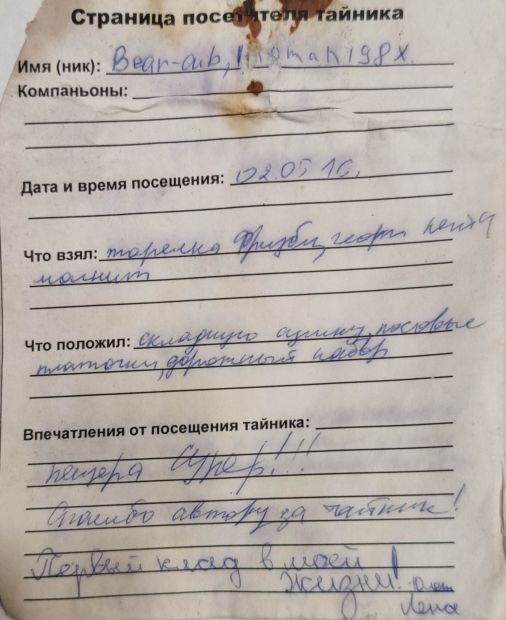 Страница посетителя тайника
Имя (ник): Bear-cub,
Компаньоны:
Дата и время посещения: 02.05 16,
Что взял: тарелка Фризби,
магнит
Что положил: складную носовые
платочки, дорожный набор
Впечатления от посещения тайника:
пещера Супер!!!
Спасибо автору за тайник!
Первый клад в моей
жизни!
Лена